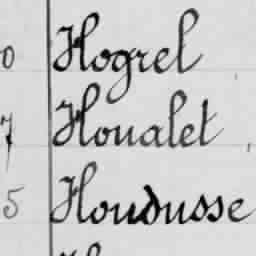 0 Hogrel
7 Houalet
5 Houdusse